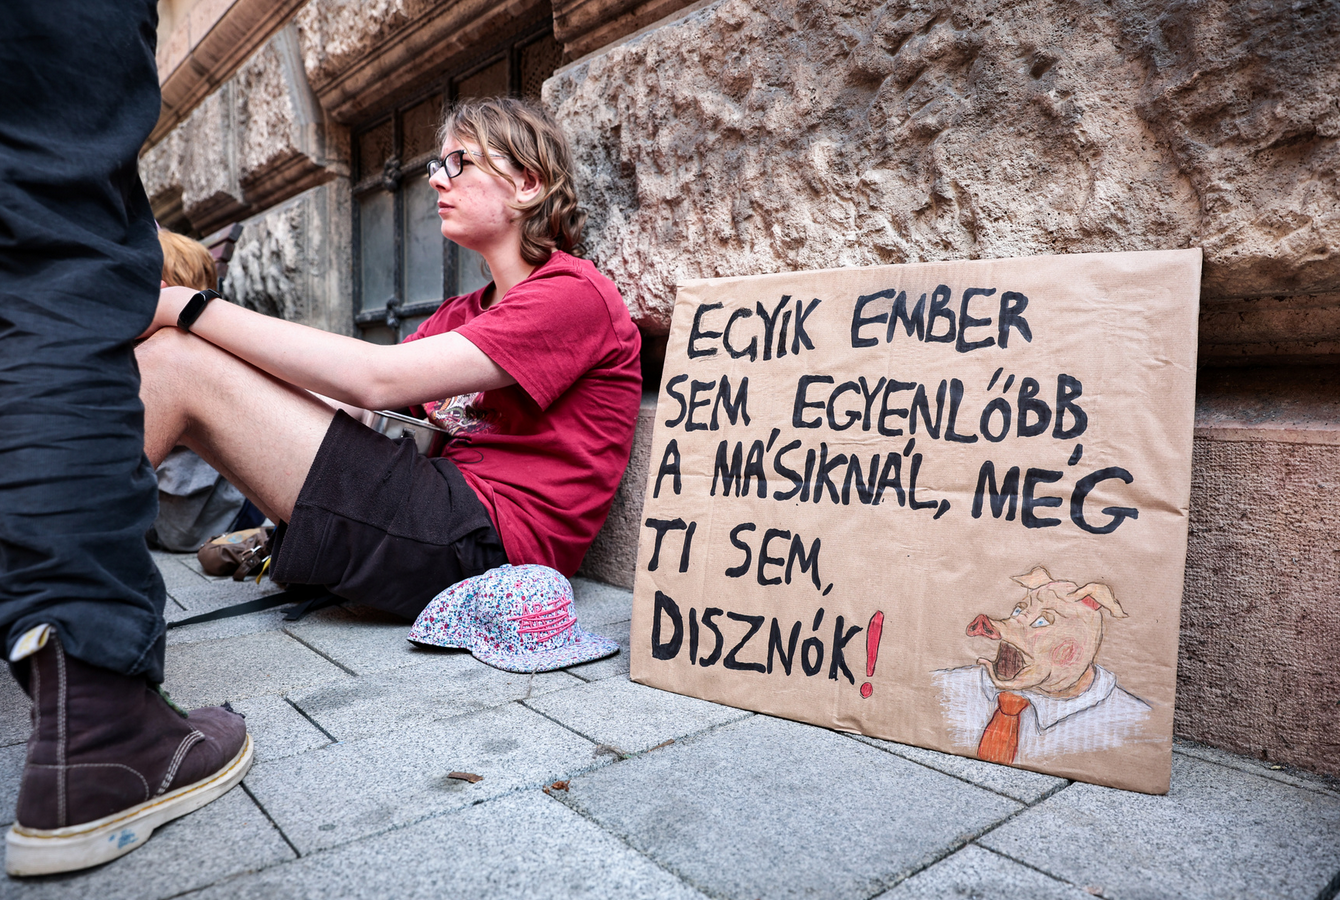 EGYIK EMBER
SEM EGYENLŐBB
A MÁSIKNÁL, MÉG
TI SEM,
DISZNÓK!